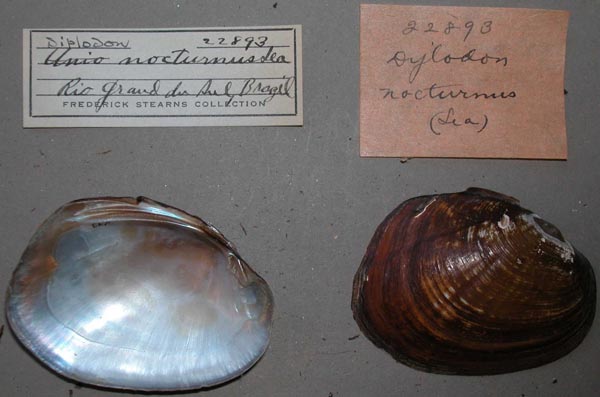 Diplodon 22893
Unio nocturnus Lea
Rio Grand du Sul, Brazil
FREDERICK STEARNS COLLECTION
22893
Dylodon
nocturnus
(Lea)